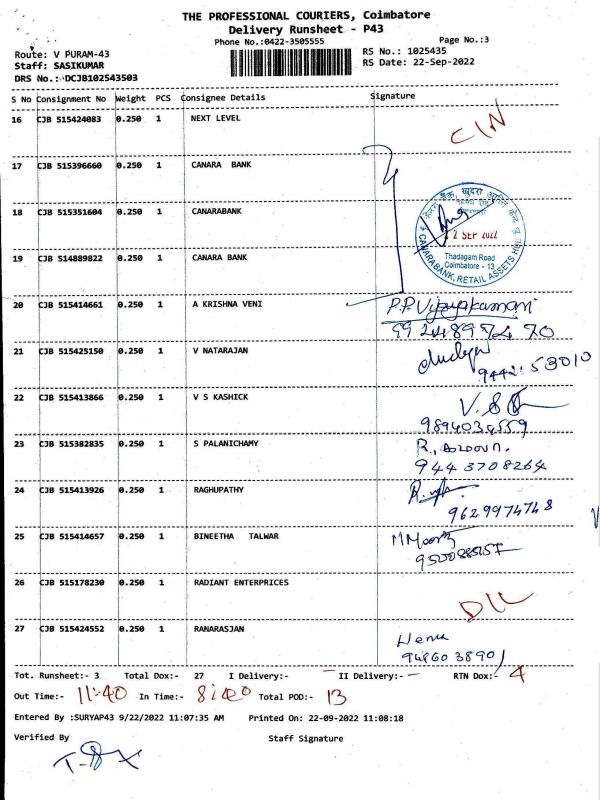 THE PROFESSIONAL COURIERS, Coimbatore
Delivery Runsheet - P43
Phone No.:0422-3505555
Page No.:3
Route: V PURAM-43
RS No.: 1025435
Staff: SASIKUMAR
RS Date: 22-Sep-2022
DRS No.: DCJB102543503
S No Consignment No Weight PCS Consignee Details Signature
16 CJB 515424083 0.250 1 NEXT LEVEL
17 CJB 515396660 0.250 1 CANARA BANK
18 CJB 515351604 0.250 1 CANARABANK
2 SEP 2022
Thadagam Road
Coimbatore - 13
CANARABANK, RETAIL ASSETS
19 CJB 514889822 0.250 1 CANARA BANK
20 CJB 515414661 0.250 1 A KRISHNA VENI
P.P. Vijayakumari
21 CJB 515425150 0.250 1 V NATARAJAN
9442153010
22 CJB 515413866 0.250 1 V S KASHICK
V.S
23 CJB 515382835 0.250 1 S PALANICHAMY
9443708264
24 CJB 515413926 0.250 1 RAGHUPATHY
9629974748
25 CJB 515414657 0.250 1 BINEETHA TALWAR
26 CJB 515178230 0.250 1 RADIANT ENTERPRICES
27 CJB 515424552 0.250 1 RANARASJAN
Hema
9486038901
Tot. Runsheet:- 3 Total Dox:- 27 I Delivery:- — II Delivery:- — RTN Dox:- 4
Out Time:- 11:40 In Time:- Total POD:- 13
Entered By :SURYAP43 9/22/2022 11:07:35 AM Printed On: 22-09-2022 11:08:18
Verified By Staff Signature